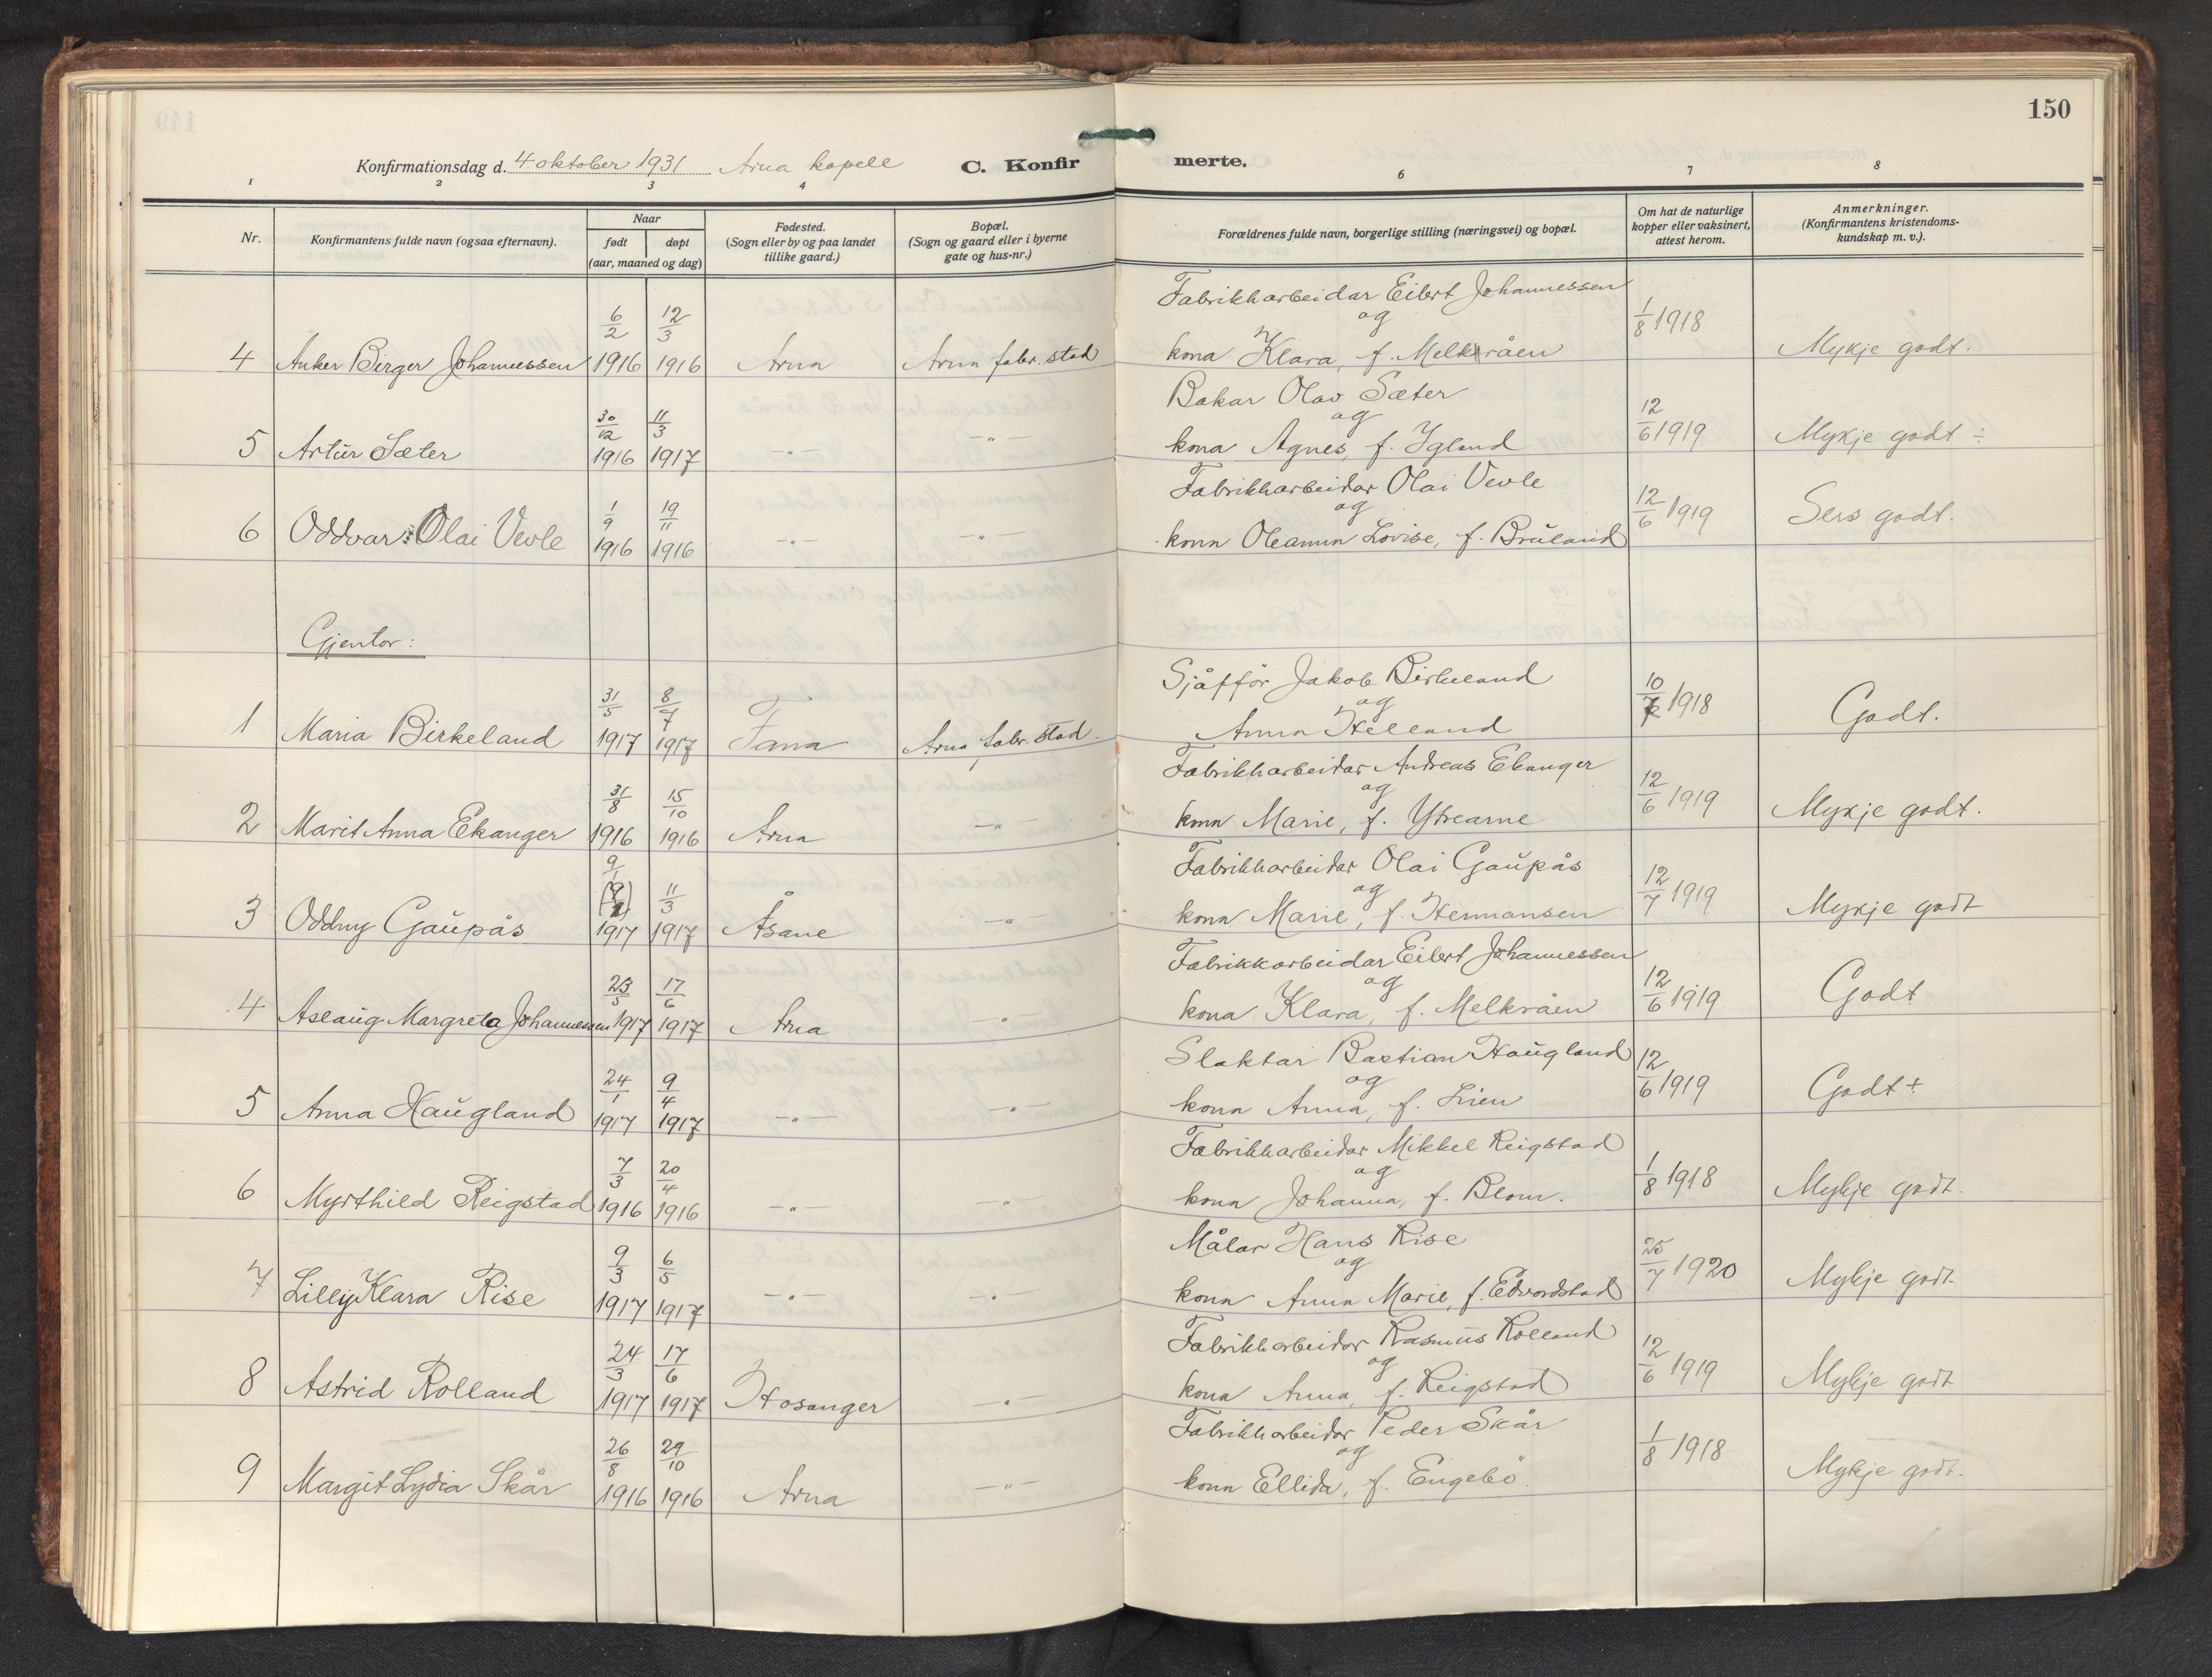 150
Konfirmationsdag d. 4. oktober 1931 Arna kapell C. Konfirmerte.
1 2 3 4 6 7 8
Nr. Konfirmantens fulde navn (ogsaa efternavn). Naar født døpt (aar, maaned og dag) Fødested. (Sogn eller by og paa landet tillike gaard.) Bopæl. (Sogn og gaard eller i byerne gate og hus-nr.) Forældrenes fulde navn, borgerlige stilling (næringsvei) og bopæl. Om hat de naturlige kopper eller vaksinert, attest herom. Anmerkninger. (Konfirmantens kristendoms-kundskap m. v.).
4 Anker Birger Johannessen 6/2 1916 12/3 1916 Arna Arna fabr. stad Fabrikkarbeidar Eilert Johannessen og kona Klara, f. Melkråen 1/8 1918 Mykje godt.
5 Artur Sæter 30/12 1916 11/3 1917 -"- -"- Bakar Olav Sæter og kona Agnes, f. Ygland 12/6 1919 Mykje godt ÷
6 Oddvar Olai Vevle 1/9 1916 19/11 1916 -"- -"- Fabrikkarbeidar Olai Vevle og kona Oleanna Lovise, f. Bruland 12/6 1919 Sers godt.
Gjentor:
1 Maria Birkeland 31/5 1917 8/7 1917 Fana Arna fabr. stad. Sjåffør Jakob Birkeland og Anna Helland 10/7 1918 Godt.
2 Marit Anna Ekanger 31/8 1916 15/10 1916 Arna -"- Fabrikkarbeidar Andreas Ekanger og kona Marie, f. Ytrearne 12/6 1919 Mykje godt.
3 Oddny Gaupås 9/1 1917 11/3 1917 Åsane -"- Fabrikkarbeidar Olai Gaupås og kona Marie, f. Hermansen 12/7 1919 Mykje godt
4 Aslaug Margreta Johannessen 23/5 1917 17/6 1917 Arna " Fabrikkarbeidar Eilert Johannessen og kona Klara, f. Melkråen 12/6 1919 Godt
5 Anna Haugland 24/1 1917 9/4 1917 -"- -"- Slaktar Bastian Haugland og kona Anna, f. Lien 12/6 1919 Godt +
6 Myrthild Reigstad 7/3 1916 20/4 1916 -"- -"- Fabrikkarbeidar Mikkel Reigstad og kona Johanna, f. Blom. 1/8 1918 Mykje godt.
7 Lilly Klara Rise 9/3 1917 6/5 1917 -"- -"- Målar Hans Rise og kona Anna Marie, f. Edvardstad 25/7 1920 Mykje godt
8 Astrid Rolland 24/3 1917 17/6 1917 Hosanger -"- Fabrikkarbeidar Rasmus Rolland og kona Anna, f. Reigstad 12/6 1919 Mykje godt
9 Margit Lydia Skår 26/8 1916 29/10 1916 Arna -"- Fabrikkarbeidar Peder Skår og kona Ellida, f. Engebø. 1/8 1918 Mykje godt.